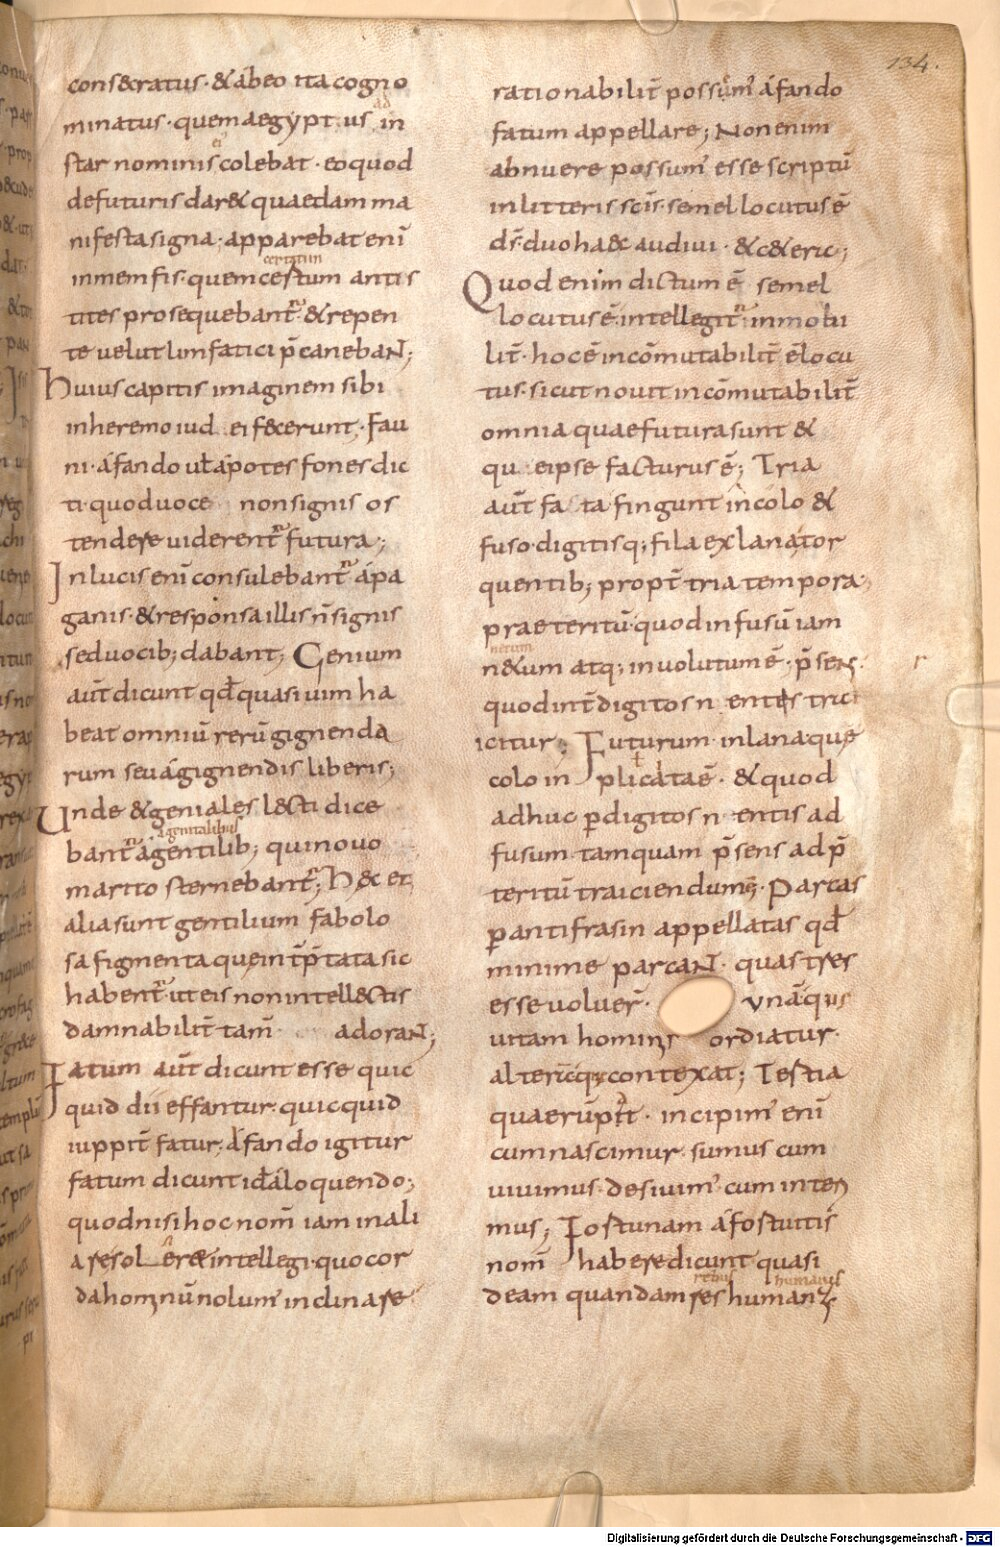 134.
cons&ratus · & abeo ita cogno
minatus · quem aegyptius in
ad
star nominis colebat · eo quod
ei
defuturis dar& quaedam ma
nifesta signa · apparebat enī
in memfis · quem cestum antis
certatum
tites prosequebant̄ · & repen
te velut linfatici p̄canebaɴ;
Huius capitis imaginem sibi
in heremo iud ei fecerunt · Fau
ni · áfando ut̄ ápotes fones dic
ti · quod uoce non signis os
tendere uiderent̄ futura;
In lucis enī consulebant̄ ápa
ganis · & responsa illis n̄ signis
sed uocib; dabant; Genium
aut̄ dicunt qđ quasi uim ha
beat omniū rerū gignenda
rum seu á gignendis liberis;
Unde & geniales lecti dice
bant̄ á gentilib; qui nouo
agenitalibus
marito sternebant̄; Hec et
alia sunt gentilium fabolo
sa figmenta que int̄p̄tata sic
habent̄ · ut eis non intellectis
damnabilit̄ tam̄ adoraɴ;
Fatum aut̄ dicunt esse quic
quid dii effantur · quicquid
iuppit̄ fatur; áfando igitur
fatum dicunt id áloquendo;
quod nisi hoc nom̄ iam in ali
a re sol ere intellegi · quo cor
da hominū nolum' inclinare
rationabilit̄ possum' áfando
fatum appellare; Non enim
abnuere possum' esse scriptū
in litteris scīs · semel locutus ē
ds̄ · duo haec audiui · & c&eric;
Quod enim dictum ē semel
locutus ē · intellegit̄ inmobi
lit̄ · hoc ē incōmutabilit̄ ē locu
tus · sicut nouit incōmutabilit̄
omnia quae futura sunt &
qu eipse facturus ē; Tria
aut̄ fa ta fingunt in colo &
fuso · digitisq; fila ex lana tor
quentib; propt̄ tria tempora
praeteritū · quod in fusū iam
n&um atq; inuolutum ē · p̄sens
netum
r
quod int̄ digitos n entes traic
icitur; Futurum · in lana que
colo in plicata ē · & quod
adhuc p digitos n entis ad
fusum · tamquam p̄sens ad p̄
teritū traiciendum ē · Parcas
p antifrasin appellatas qđ
minime parcaɴ · quas tres
esse uoluer̄ · unā que
uitam hominis ordiatur
alterāq; contexat; Tertia
quae rūpat · incipim' enī
cum nascimur · sumus cum
uiuimus · desiuim' cum interi
mus; Fortunam áfortuitis
nom̄ habere dicunt quasi
deam quandam res humanas
rebus humanis
Digitalisierung gefördert durch die Deutsche Forschungsgemeinschaft - DFG